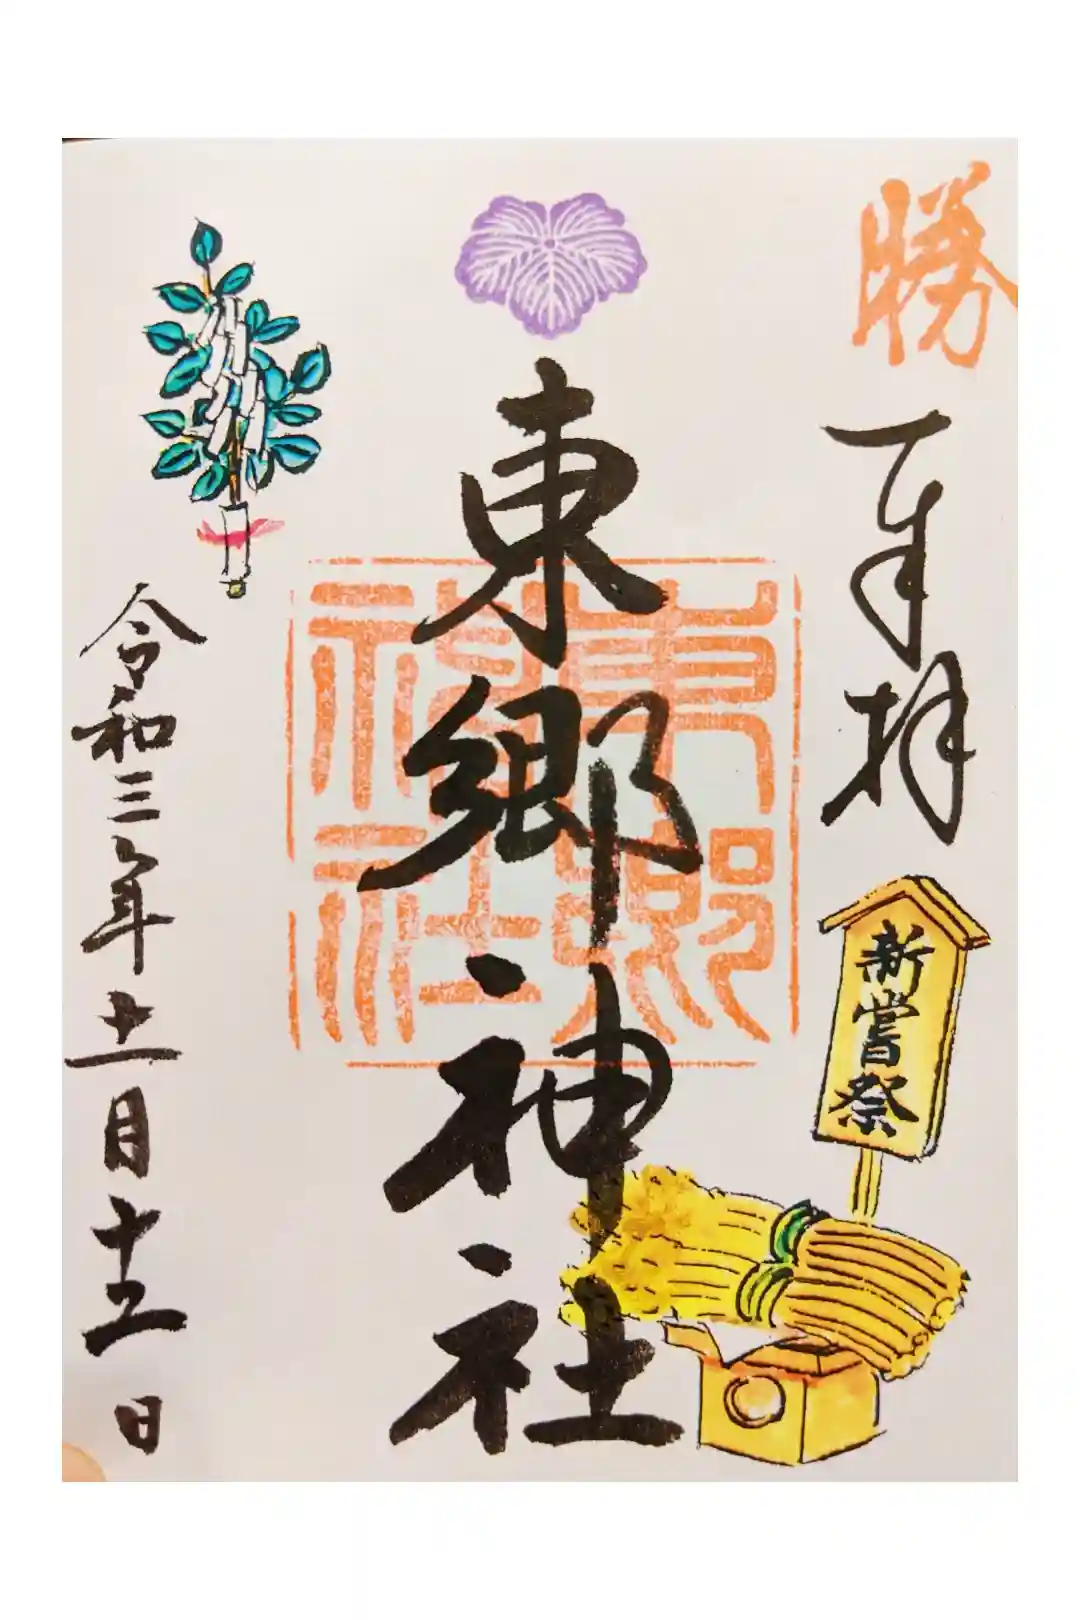 勝
奉拝
新嘗祭
東郷神社
東郷神社
令和三年十一月十五日